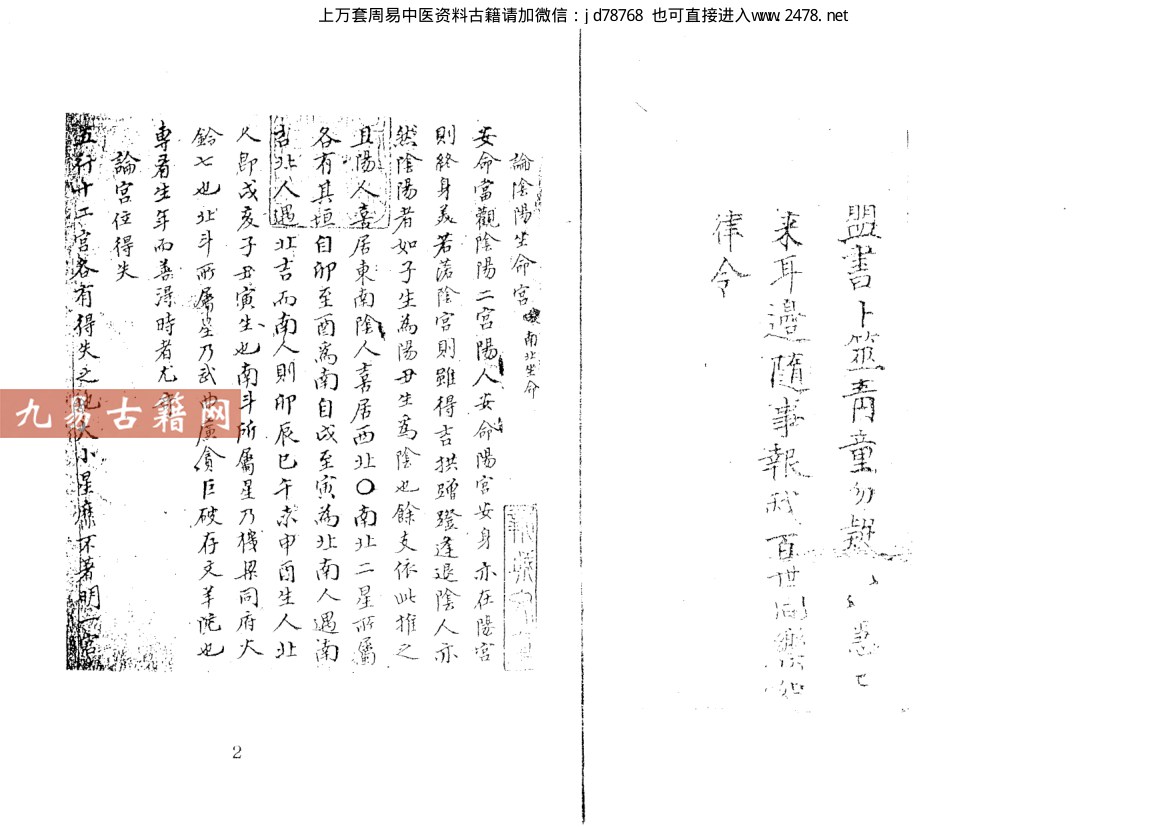 上万套周易中医资料古籍请加微信：jd78768 也可直接进入www.2478.net
盟書卜筮青童勿疑
来耳邊随事報我百世同 如
律令
論陰陽生命宮 南北生命
安命當觀陰陽二宮陽人安命陽宮安身亦在陽宮
則終身美若落陰宮則雖得吉拱蹭蹬逢退陰人亦
然陰陽者如子生為陽丑生為陰也餘支依此推之
且陽人喜居東南陰人喜居西北〇南北二星所屬
各有其垣自卯至酉為南自戌至寅為北南人遇南
吉北人遇北吉而南人則卯辰巳午未申酉生人北
人即戌亥子丑寅生也南斗所屬星乃機梁同府火
鈴七也北斗所屬星乃武曲廉貪巨破存文羊陀也
專看生年而善得時者尤
論宮位得失
五行十二宮各有得失之 大小星 不著明一宮
九易古籍网
2